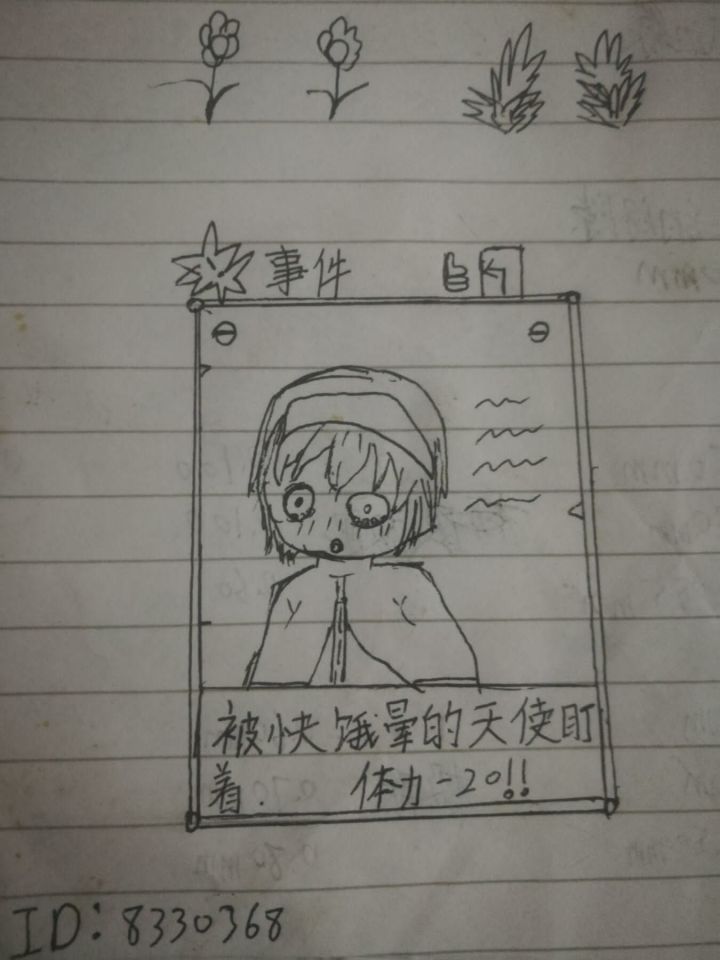 事件
被快饿晕的天使盯
着. 体力-20!!
ID: 8330368